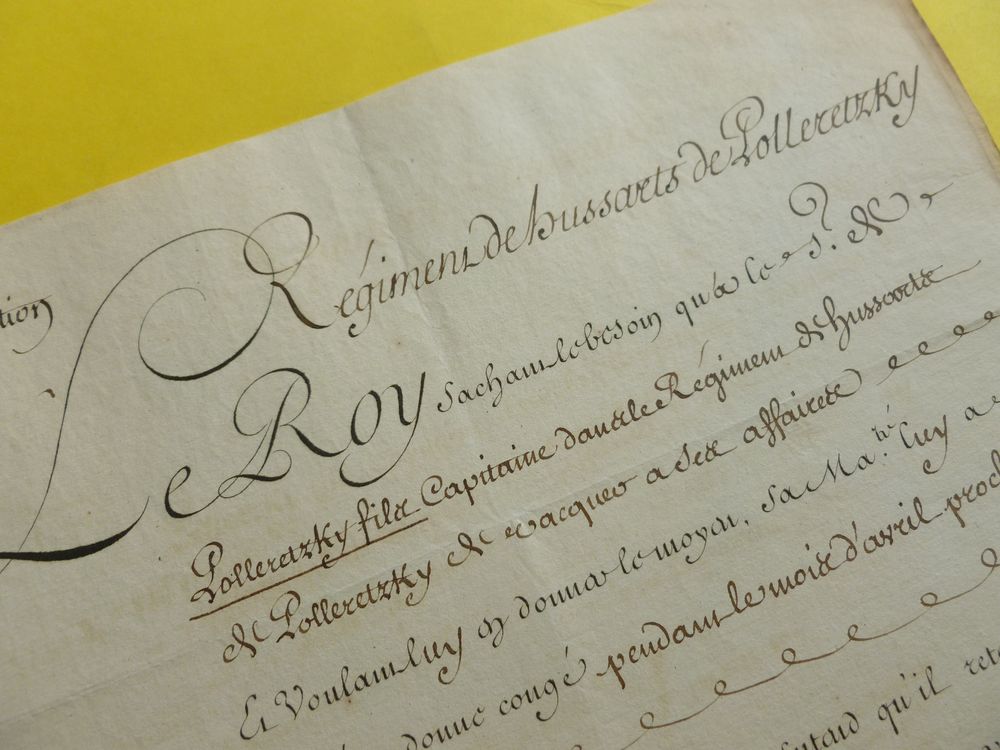 tion
Régiment de hussarts de Polleretzky
Le Roy sachant le besoin qu'a le Sr. de
Polleretzky fils Capitaine dans le Régiment de hussarts
de Polleretzky de vacquer a ses affaires
Et Voulant luy en donner le moyen, Sa Maté. luy a
donne congé pendant le mois d'avril proch
qu'il ret